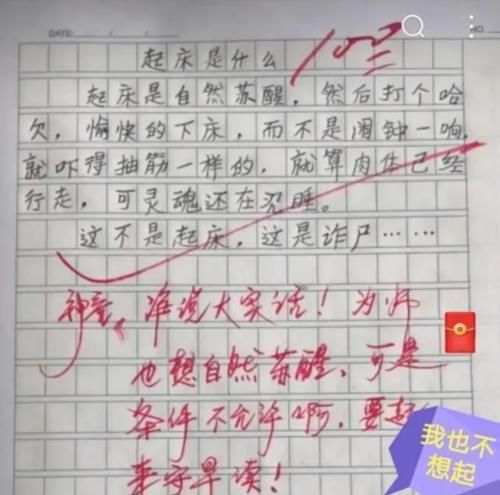 DATE: / /
NO
100
起床是什么
起床是自然苏醒，然后打个哈
欠，愉快的下床，而不是闹钟一响，
就吓得抽筋一样的，就算肉体已经
行走，可灵魂还在沉睡。
这不是起床，这是诈尸……
神童，准说大实话！为师
也想自然苏醒，可是
条件不允许啊，要起
来守早读！
我也不
想起